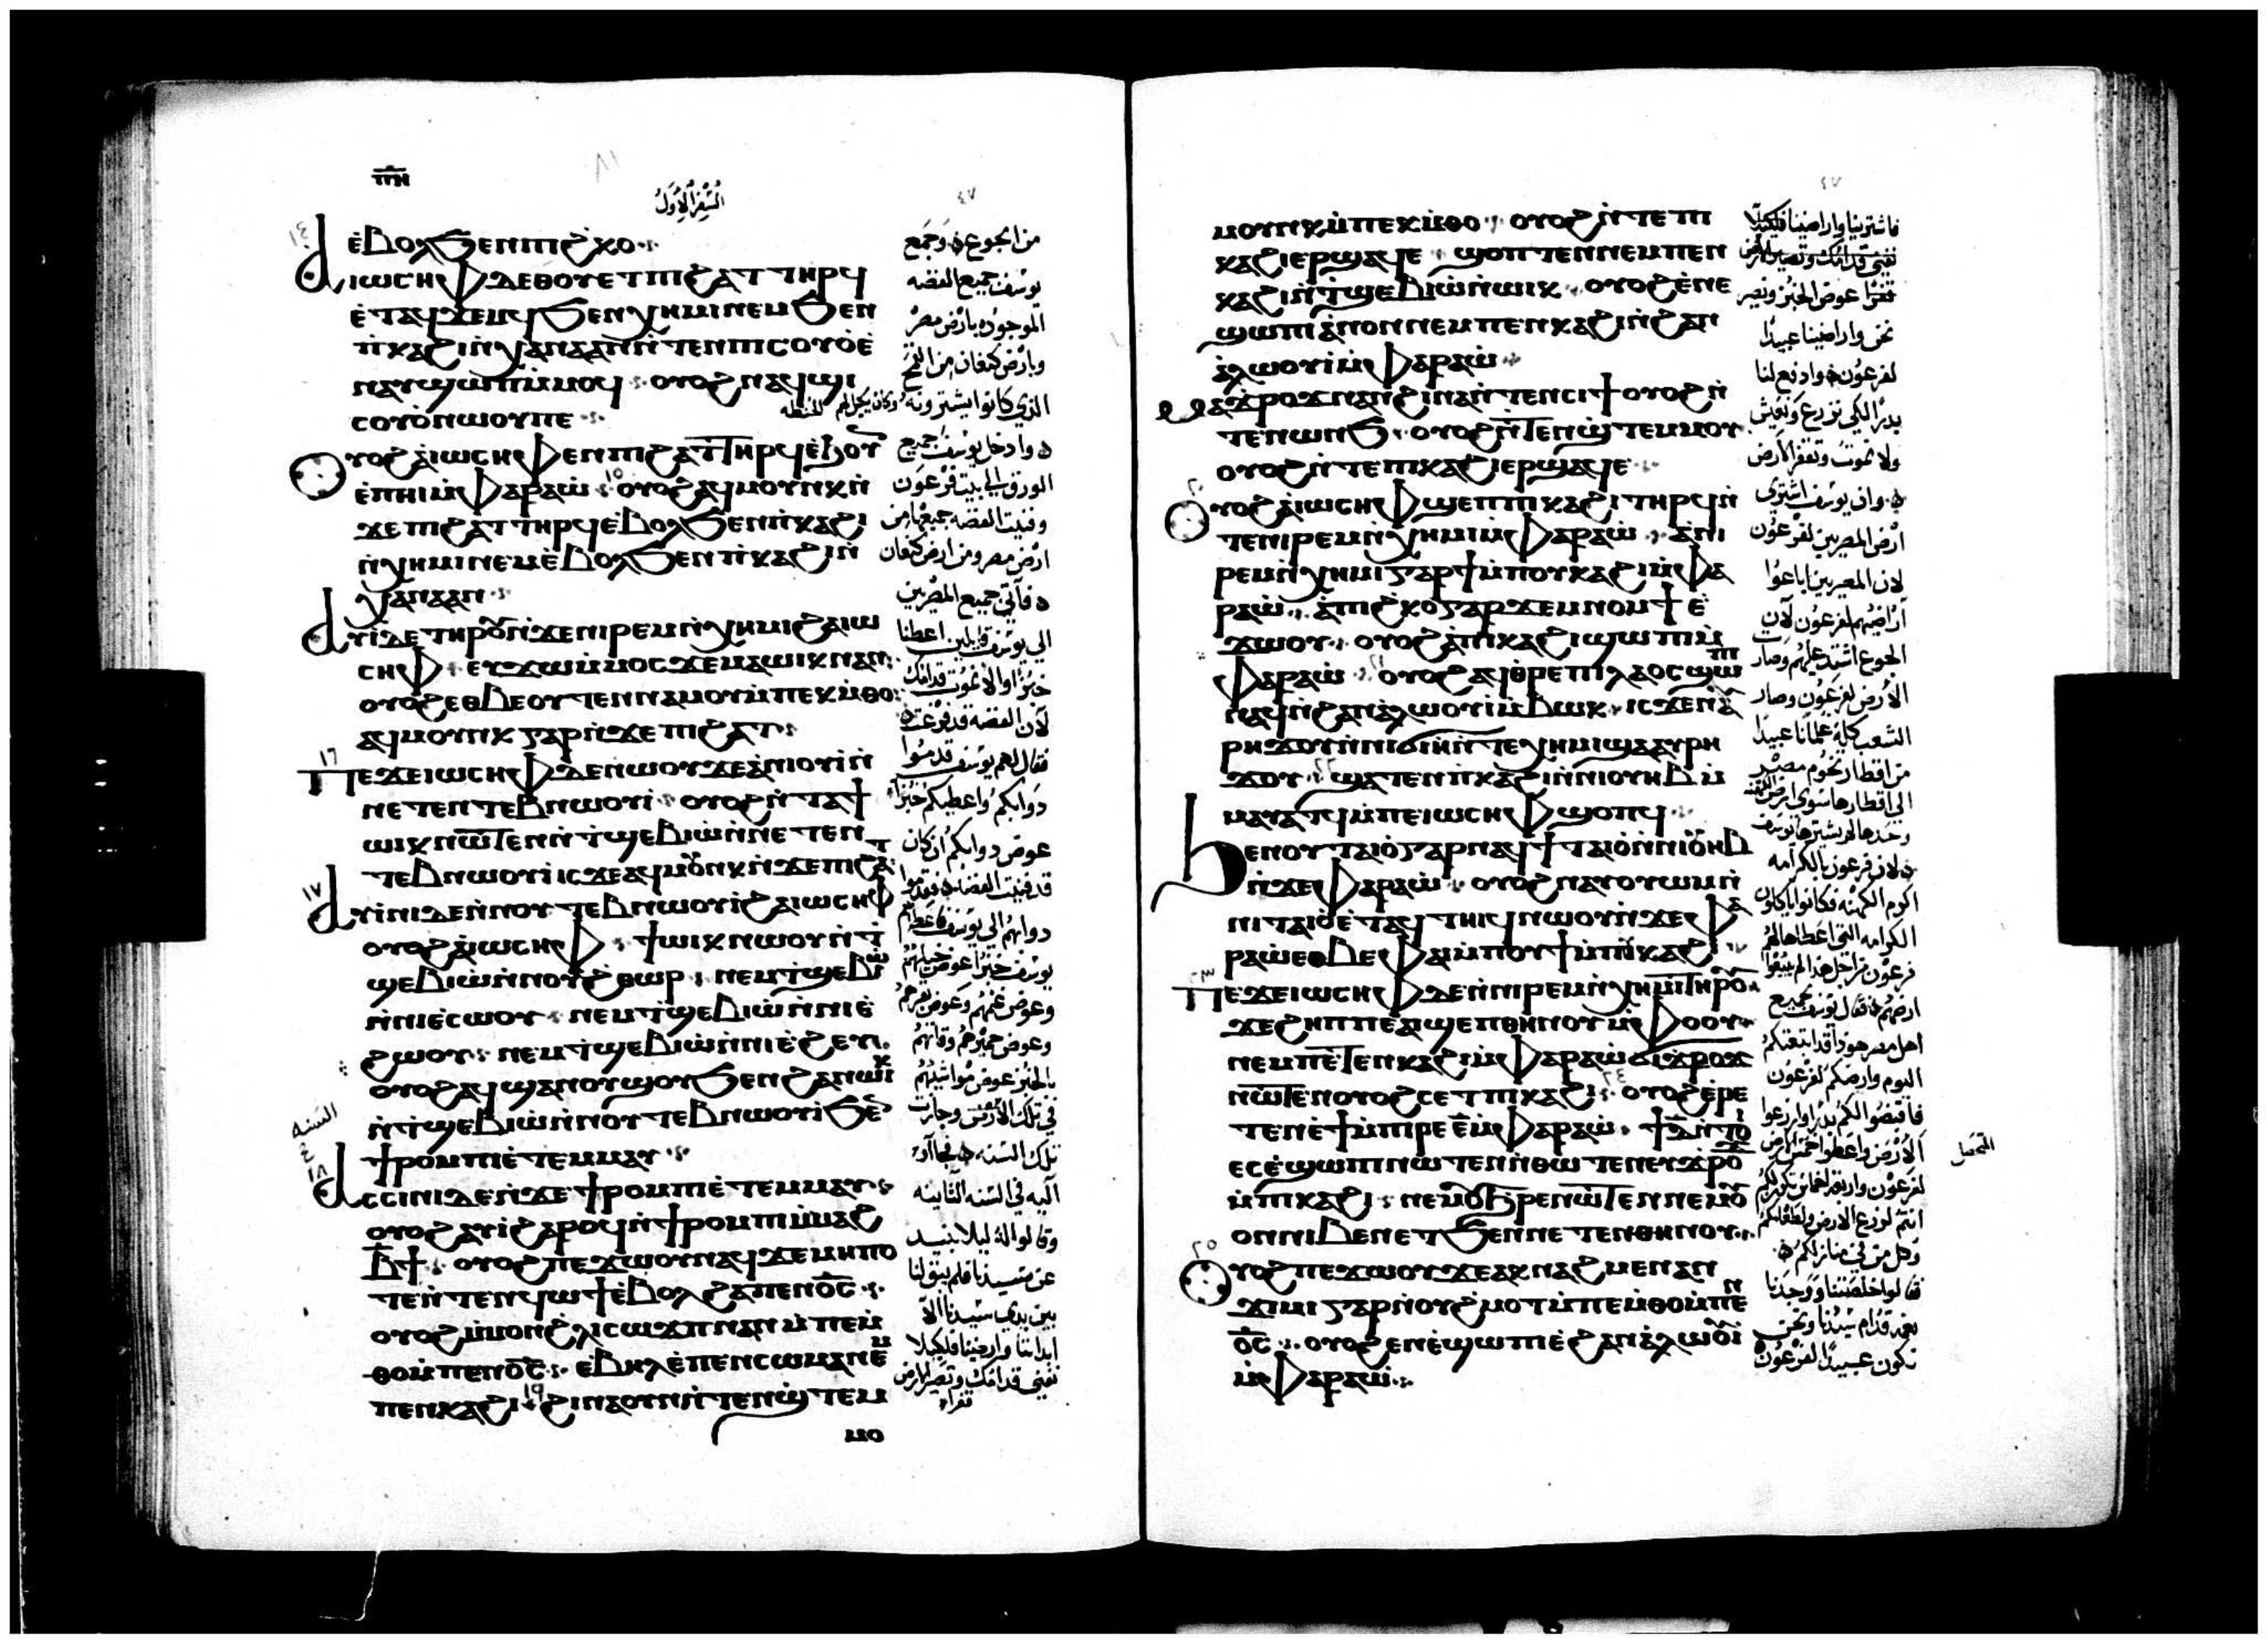 ⲡⲏ
٨١
السفر الاول
٤٧
١٤
ⲉ̀ⲃⲟⲗϧⲉⲛⲡⲓϩ̀ⲕⲟ
ⲁⲓⲱⲥⲏⲫⲇⲉⲑⲟⲩⲉⲧⲡⲓϩⲁⲧ ⲧⲏⲣϥ
ⲉ̀ⲧⲁϥϫⲉⲙϥϧⲉⲛⲭⲏⲙⲓⲛⲉⲙϧⲉⲛ
ⲡ̀ⲕⲁϩⲓⲛ̀ⲭⲁⲛⲁⲁⲛⲛ̀ⲧⲉⲛⲡⲓⲥⲟⲩⲟ̀ⲉ̀
ⲛⲁⲩϣⲱⲡⲙ̀ⲙⲟϥ ⲟⲩⲟϩ ⲛⲁϥϣⲓ
ⲥⲟⲩⲟ̀ⲛⲱⲟⲩⲡⲉ
ⲟⲩⲟϩⲁ̀ⲓⲱⲥⲏⲫⲉⲛⲡⲓϩⲁⲧⲧⲏⲣϥⲉ̀ϧⲟⲩ
ⲉ̀ⲡⲏⲓⲙ̀ⲫⲁⲣⲁⲱ̀ ١٥ ⲟⲩⲟϩⲁϥⲙⲟⲩⲛⲕⲛ̀
ϫⲉⲡⲓϩⲁⲧ ⲧⲏⲣϥⲉ̀ⲃⲟⲗϧⲉⲛⲡ̀ⲕⲁϩⲓ
ⲛ̀ⲭⲏⲙⲓⲛⲉⲙⲉ̀ⲃⲟⲗϧⲉⲛⲡ̀ⲕⲁϩⲓⲛ̀
ⲭⲁⲛⲁⲁⲛ
ⲁⲩⲓ̀ⲇⲉⲧⲏⲣⲟⲩⲛ̀ϫⲉⲛⲓⲣⲉⲙⲛ̀ⲭⲏⲙⲓϩⲁⲓⲱ
ⲥⲏⲫ ⲉⲩϫⲱⲙ̀ⲙⲟⲥϫⲉⲙⲁⲱⲓⲕⲛⲁⲛ
ⲟⲩⲟϩⲉⲑⲃⲉⲟⲩⲧⲉⲛⲛⲁⲙⲟⲩⲙ̀ⲡⲉⲕⲙ̀ⲑⲟ
ⲁϥⲙⲟⲩⲛⲕ ⲅⲁⲣⲛ̀ϫⲉⲡⲓϩⲁⲧ
١٦
ⲡⲉϫⲉⲓⲱⲥⲏⲫⲇⲉⲛⲱⲟⲩϫⲉⲁ̀ⲛⲓⲟⲩⲓ̀ⲛ̀
ⲛⲉⲧⲉⲛⲧⲉⲃⲛⲱⲟⲩⲓ̀ ⲟⲩⲟϩⲛ̀ⲧⲁϯ
ⲱⲓⲕⲛⲱⲧⲉⲛⲛ̀ⲧ̀ϣⲉⲃⲓⲱ̀ⲛ̀ⲛⲉⲧⲉⲛ
ⲧⲉⲃⲛⲱⲟⲩⲓ̀ⲓⲥϫⲉⲁϥⲙⲟⲩⲛⲕⲛ̀ϫⲉⲡⲓϩⲁⲧ
١٧
ⲁⲩⲓ̀ⲛⲓⲇⲉⲛ̀ⲛⲟⲩⲧⲉⲃⲛⲱⲟⲩⲓ̀ϩⲁⲓⲱⲥⲏⲫ
ⲟⲩⲟϩⲁ̀ⲓⲱⲥⲏⲫ ϯⲱⲓⲕⲛⲱⲟⲩⲛ̀ⲧ̀
ϣⲉⲃⲓⲱ̀ⲛ̀ⲛⲟⲩϩ̀ⲑⲱⲣ ⲛⲉⲙⲧ̀ϣⲉⲃⲓⲱ̀
ⲛ̀ⲛⲓⲉ̀ⲥⲱⲟⲩ ⲛⲉⲙⲧ̀ϣⲉⲃⲓⲱ̀ⲛ̀ⲛⲓⲉ̀
ϩⲱⲟⲩ ⲛⲉⲙⲧ̀ϣⲉⲃⲓⲱ̀ⲛ̀ⲛⲓⲉ̀ϩⲉⲩ
ⲟⲩⲟϩⲁϥϣⲁⲛⲟⲩϣⲟⲩϧⲉⲛϩⲁⲛⲱⲓⲕ
ⲛ̀ⲧ̀ϣⲉⲃⲓⲱ̀ⲛ̀ⲛⲟⲩⲧⲉⲃⲛⲱⲟⲩⲓ̀ϧⲉⲛ
ϯⲣⲟⲙⲡⲓⲉ̀ⲧⲉⲙⲙⲁⲩ
السنه
١٨
ⲁⲥⲥⲓⲛⲓⲇⲉⲛ̀ϫⲉϯⲣⲟⲙⲡⲓⲉ̀ⲧⲉⲙⲙⲁⲩ
ⲟⲩⲟϩⲁⲩⲓ̀ϩⲁⲣⲟϥⲛ̀ϯⲣⲟⲙⲡⲓⲙ̀ⲙⲁϩ
ⲃ̅ϯ ⲟⲩⲟϩⲡⲉϫⲱⲟⲩⲛⲁϥϫⲉⲙⲏⲡⲟ
ⲧⲉⲛ̀ⲧⲉⲛϥⲱϯⲉ̀ⲃⲟⲗϩⲁⲡⲉⲛⲟ̅ⲥ̅
ⲟⲩⲟϩⲙ̀ⲙⲟⲛϩ̀ⲗⲓⲥⲱϫⲡⲛⲁⲛⲙ̀ⲡⲉⲙ̀
ⲑⲟⲙ̀ⲡⲉⲛⲟ̅ⲥ̅ ⲉ̀ⲃⲏⲗⲉ̀ⲡⲉⲛⲥⲱⲙⲁⲛⲉⲙ
ⲡⲉⲛⲕⲁϩⲓ ١٩ ϩⲓⲛⲁⲟⲩⲛⲛ̀ⲧⲉⲛϣ̀ⲧⲉⲙ
ⲙⲟ
من الجوع ه وجمع
يوسف جميع الفضه
الموجوده بارض مصر
وبارض كنعان من القمح
الذي كانوا يشترونه وكان يكيل لهم الحنطه
ه وادخل يوسف جميع
الورق الي بيت فرعون
وفنيت الفضه جميعها من
ارض مصر ومن ارض كنعان
ه فاتي جميع المصريين
الي يوسف قايلين اعطنا
خبزا والا نموت قدامك
لان الفضه قد فرغت ه
فقال لهم يوسف قدموا
دوابكم واعطيكم خبزا
عوض دوابكم ان كان
قد فنيت الفضه ه فقدموا
دوابهم الي يوسف فاعطاهم
يوسف خبزا عوض خيلهم
وعوض غنمهم وعوض بقرهم
وعوض حميرهم وقاتهم
بالخبز عوض مواشيهم
في تلك الارض وجازت
تلك السنه ه فجاآو
اليه في السنه الثانيه
وقالوا له ليلا نبيد
عن سيدنا فلم يبق لنا
بين يدي سيدنا الا
ابداننا واراضينا فلكيلا
نفني قدامك وتصير الارض
قفراء
٤٧
ⲙⲟⲩⲛⲕⲙ̀ⲡⲉⲕⲙ̀ⲑⲟ ⲟⲩⲟϩⲛ̀ⲧⲉⲡⲓ
ⲕⲁϩⲓⲉⲣϣⲁϥⲉ ϣⲟⲡⲧⲉⲛⲛⲉⲙⲡⲉⲛ
ⲕⲁϩⲓⲛ̀ⲧ̀ϣⲉⲃⲓⲱ̀ⲛ̀ⲱⲓⲕ ⲟⲩⲟϩⲉ̀ⲛⲉ
ϣⲱⲡⲓⲁ̀ⲛⲟⲛⲛⲉⲙⲡⲉⲛⲕⲁϩⲓⲛ̀ϩⲁⲛ
ⲁ̀ⲗⲱⲟⲩⲓ̀ⲙ̀ⲫⲁⲣⲁⲱ̀
ⲙⲁϫⲣⲟϫⲛⲁⲛϩⲓⲛⲁⲛ̀ⲧⲉⲛⲥⲓϯⲟⲩⲟϩⲛ̀
ⲧⲉⲛⲱⲛϧ ⲟⲩⲟϩⲛ̀ⲧⲉⲛϣ̀ⲧⲉⲙⲙⲟⲩ
ⲟⲩⲟϩⲛ̀ⲧⲉⲡⲕⲁϩⲓⲉⲣϣⲁϥⲉ
٢٠
ⲟⲩⲟϩⲁ̀ⲓⲱⲥⲏⲫϣⲉⲡⲡⲓⲕⲁϩⲓⲧⲏⲣϥⲛ̀
ⲧⲉⲛⲓⲣⲉⲙⲛ̀ⲭⲏⲙⲓⲙ̀ⲫⲁⲣⲁⲱ̀ ⲁ̀ⲛⲓ
ⲣⲉⲙⲛ̀ⲭⲏⲙⲓⲅⲁⲣϯⲙ̀ⲡⲟⲩⲕⲁϩⲓⲙ̀ⲫⲁ
ⲣⲁⲱ̀ ⲁ̀ⲡⲓϩ̀ⲕⲟⲅⲁⲣϫⲉⲙⲛⲟⲙϯⲉ̀
ϫⲱⲟⲩ ⲟⲩⲟϩⲁ̀ⲡ̀ⲕⲁϩⲓϣⲱⲡⲓⲙ̀
ⲫⲁⲣⲁⲱ̀ ٢١ ⲟⲩⲟϩⲁϥⲑ̀ⲣⲉⲡⲓⲗⲁⲟⲥϣⲱⲡⲓ
ⲛⲁϥⲛ̀ϩⲁⲛⲁ̀ⲗⲱⲟⲩⲓ̀ⲙ̀ⲃⲱⲕ ⲓⲥϫⲉⲛⲁ
ⲣⲏϫⲟⲩⲛ̀ⲛⲓϭⲓⲏⲛ̀ⲧⲉⲭⲏⲙⲓϣⲁⲁⲩⲣⲏ
ϫⲟⲩ ٢٢ ϣⲁⲧⲉⲛⲡ̀ⲕⲁϩⲓⲛ̀ⲛⲓⲟⲩⲏⲃⲙ̀
ⲙⲁⲩⲁⲧϥⲙ̀ⲡⲉⲓⲱⲥⲏⲫϣⲟⲡϥ
ϧⲉⲛⲟⲩⲧⲁⲓⲟ̀ⲅⲁⲣⲛⲁϥϯⲧⲁⲓⲟ̀ⲛ̀ⲛⲓⲟⲩⲏⲃ
ⲛ̀ϫⲉⲫⲁⲣⲁⲱ̀ ⲟⲩⲟϩⲛⲁⲩⲟⲩⲱⲙⲛ̀
ⲛⲓⲧⲁⲓⲟ̀ⲉ̀ⲧⲁϥⲧⲏⲓϥⲛⲱⲟⲩⲛ̀ϫⲉⲫⲁ
ⲣⲁⲱ̀ⲉⲑⲃⲉⲫⲁⲓⲙ̀ⲡⲟⲩϯⲙ̀ⲡⲟⲩⲕⲁϩⲓ
٢٣
ⲡⲉϫⲉⲓⲱⲥⲏⲫⲇⲉⲛ̀ⲛⲓⲣⲉⲙⲛ̀ⲭⲏⲙⲓⲧⲏⲣⲟⲩ
ϫⲉϩⲏⲡⲡⲉⲁⲓϣⲉⲡⲑⲏⲛⲟⲩⲙ̀ⲫⲟⲟⲩ
ⲛⲉⲙⲡⲉⲧⲉⲛⲕⲁϩⲓⲙ̀ⲫⲁⲣⲁⲱ̀ϭⲓϫⲣⲟϫ
ⲛⲱⲧⲉⲛⲟⲩⲟϩⲥⲉⲧⲡⲓⲕⲁϩⲓ ٢٤ ⲟⲩⲟϩⲉ̀ⲣⲉ
ⲧⲉⲛⲉ̀ϯⲙ̀ⲡⲓⲣⲉⲉ̅ⲙ̀ⲫⲁⲣⲁⲱ̀ ϯⲇ̅ⲛ̀ⲧⲟⲓ
ⲉⲥⲉ̀ϣⲱⲡⲓⲛⲱⲧⲉⲛⲛ̀ⲑⲱⲧⲉⲛⲉⲩϫⲣⲟϫ
ⲙ̀ⲡⲕⲁϩⲓ ⲛⲉⲙⲟⲩϧⲣⲉⲛⲱⲧⲉⲛⲛⲉⲙⲟⲩ
ⲟⲛⲛⲓⲃⲉⲛⲉⲧϧⲉⲛⲛⲉⲧⲉⲛⲑⲏⲛⲟⲩ
٢٥
ⲟⲩⲟϩⲡⲉϫⲱⲟⲩϫⲉⲁⲕⲛⲁϩⲙⲉⲛⲁⲛ
ϫⲓⲙⲓⲅⲁⲣⲛ̀ⲟⲩϩ̀ⲙⲟⲧⲙ̀ⲡⲉⲙ̀ⲑⲟⲙ̀ⲡⲉⲛ
ⲟ̅ⲥ̅ ⲟⲩⲟϩⲉⲛⲉ̀ϣⲱⲡⲓⲉ̀ϩⲁⲛⲁ̀ⲗⲱⲟⲩⲓ̀
ⲙ̀ⲫⲁⲣⲁⲱ̀
فاشترينا واراضينا فلكيلا
نفني قدامك وتصير الارض
قفرا عوض الخبز ونصير
نحن واراضينا عبيدا
لفرعون ه وادفع لنا
بدرا لكي نزرع ونعيش
ولا نموت وتقفر الارض
ه وان يوسف اشتري
ارض المصريين لفرعون
لان المصريين اباعوا
اراضيهم لفرعون لان
الجوع اشتد عليهم وصار
الارض لفرعون وصار
الشعب كله غلمانا عبيدا
من اقطار تخوم مصر
الي اقطارها سوي ارض الكهنه
وحدها لم يشترها يوسف
ه لان فرعون بالكرامه
اكرم الكهنه فكانوا ياكلون
الكرامه التي اعطاها لهم
فرعون من اجل هذا لم يبيعوا
ارضهم ه فقال يوسف لجميع
اهل مصر هوذا قد ابتعتكم
اليوم وارضكم لفرعون
فاقبضوا لكم بدرا وازرعوا
الارض واعطوا الخمس
لفرعون واربعه اخماس تكون لكم
انتم لزرع الارض ولطعامكم
وكل من في منازلكم ه
فقالوا خلصتنا ووجدنا
نعمه قدام سيدنا ونحن
نكون عبيدا لفرعون